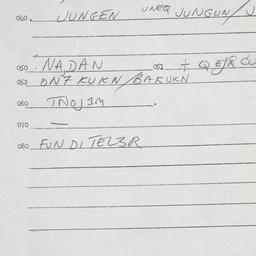 040. JUNGEN UNEQ JUNGUN/J
050. NADAN 051 + QEJA
052 ON7 KUKN/BAKUKN
060 TNOJIM.
070 —
080 FUN DI TEL3R